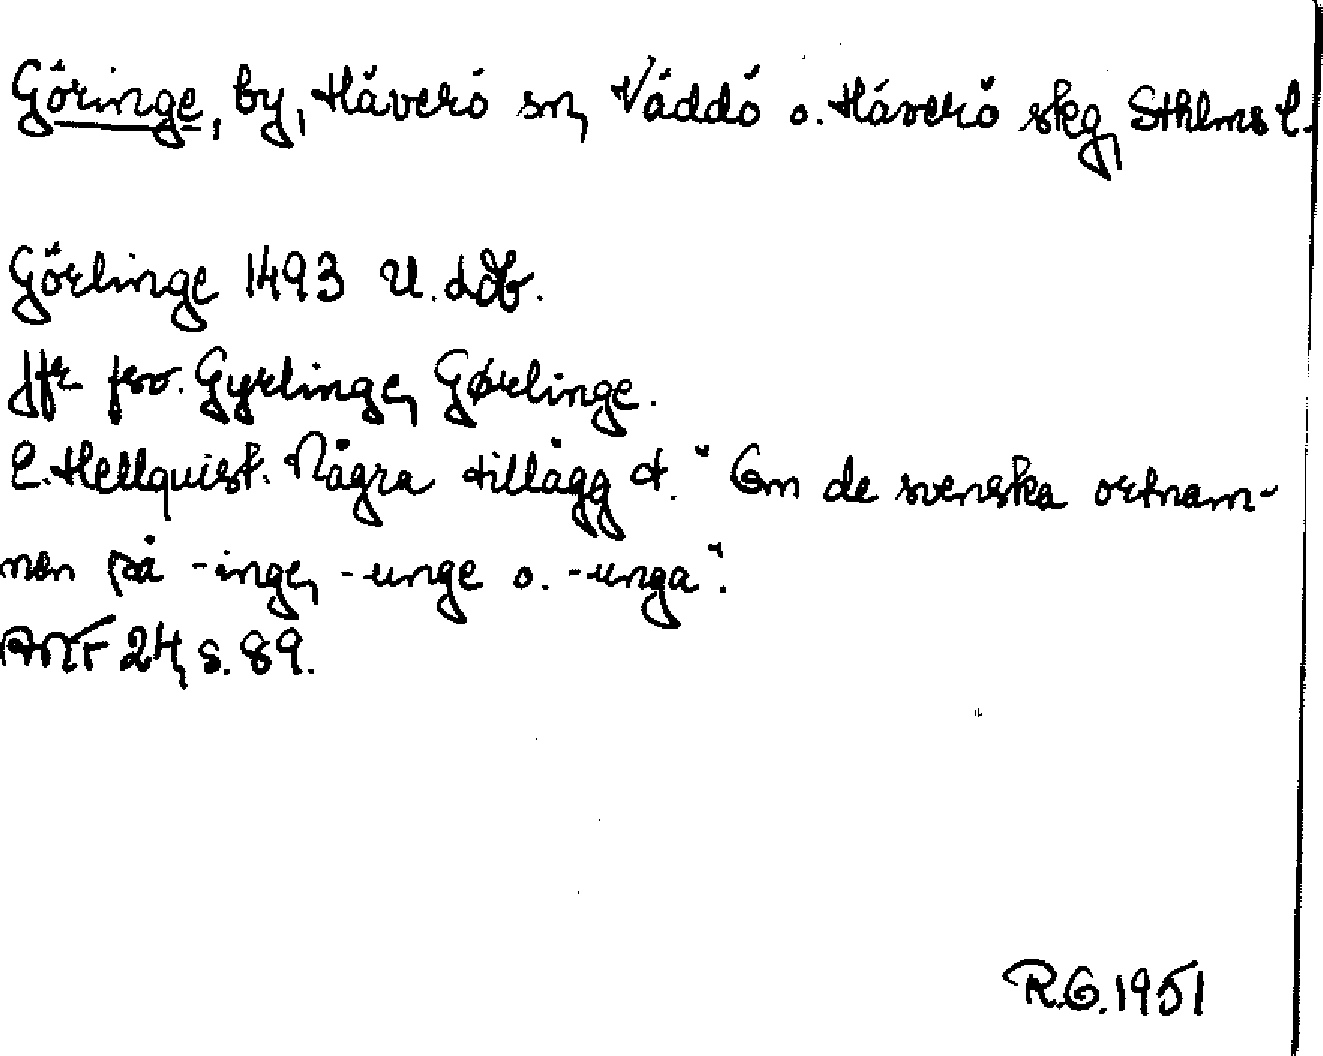 Göringe, by, Häverö sn, Väddö o. Häverö skg, Sthlms l.
Görlinge 1493 U. döb.
Jfr fsv. Gyrlinge, Gørlinge.
E. Hellquist. Några tillägg t. "Om de svenska ortnam-
nen på -inge, -unge o. -unga".
ANF 24, s. 89.
R.O. 1951